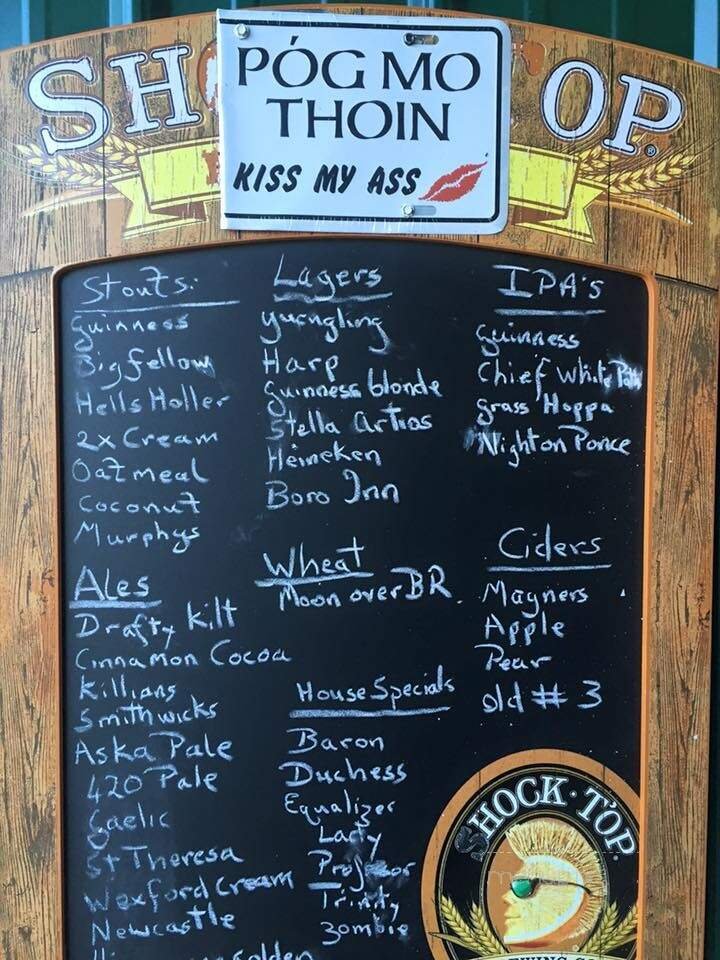 SH OP
PÓG MO
THOIN
KISS MY ASS
Stouts:
Guinness
Big fellow
Hells Holler
2x Cream
Oatmeal
Coconut
Murphys
Ales
Drafty Kilt
Cinnamon Cocoa
Killians
Smithwicks
Aska Pale
420 Pale
Gaelic
St Theresa
Wexford Cream
Newcastle
Golden
Lagers
Yuengling
Harp
Guinness blonde
Stella Artios
Heineken
Boro Inn
Wheat
Moon over BR.
House Specials
Baron
Duchess
Equalizer
Lady
Professor
Trinity
Zombie
IPA's
Guinness
Chief White
Grass Hoppa
Night on Ponce
Ciders
Magners
Apple
Pear
old # 3
SHOCK·TOP